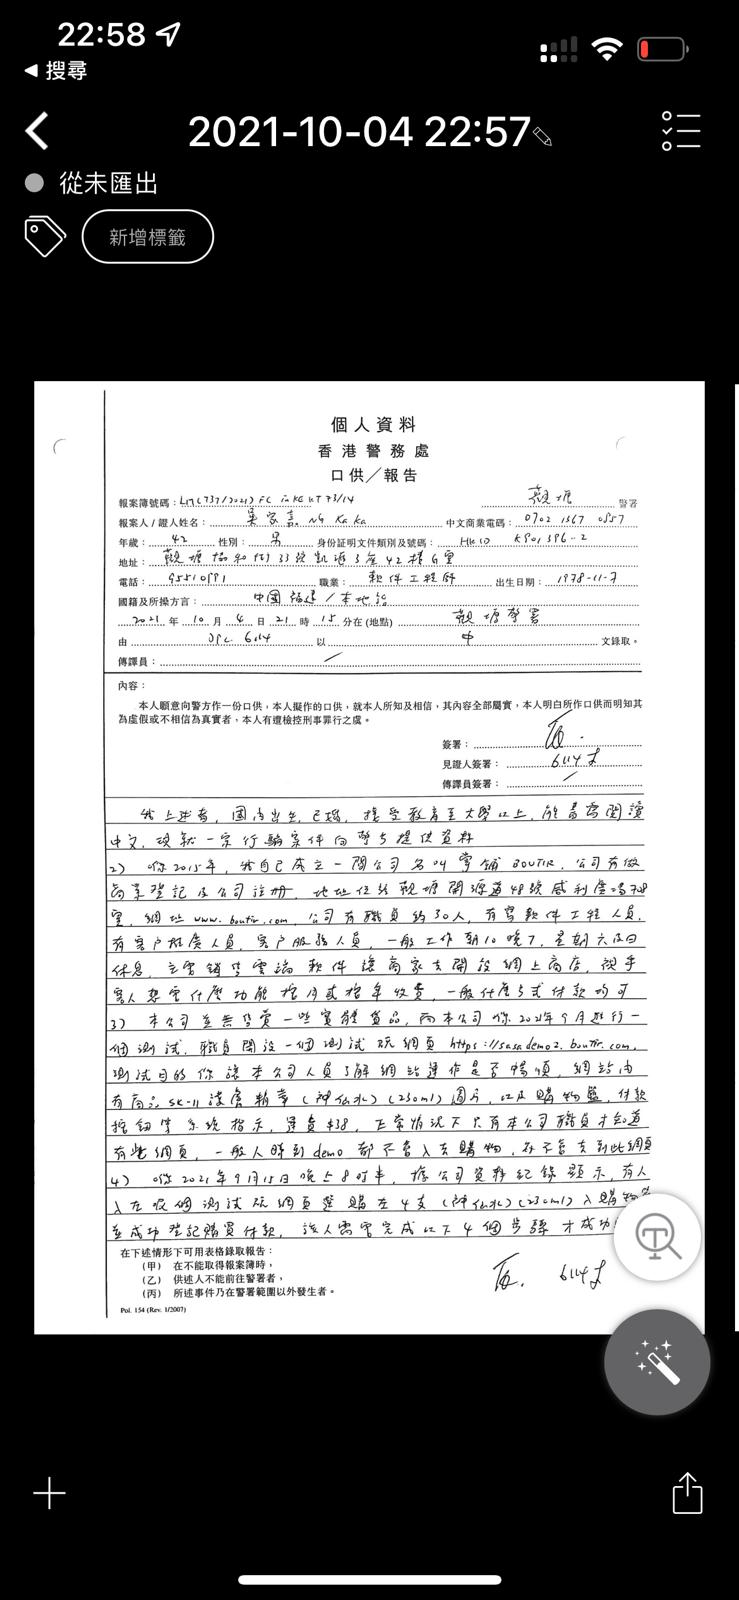 22:58
搜尋
2021-10-04 22:57
從未匯出
新增標籤
個人資料
香港警務處
口供／報告
報案簿號碼： 觀塘 警署
報案人/證人姓名： 吳家嘉 NG Ka Ka 中文商業電碼： 0702 1367 0857
年歲： 42 性別： 男 身份証明文件類別及號碼： HKID
地址： 觀塘協和街33號凱滙3座42樓G室
電話： 職業： 軟件工程師 出生日期： 1978-11-7
國籍及所操方言： 中國福建/本地話
2021 年 10 月 4 日 21 時 15 分在(地點) 觀塘警署
由 DPC 6114 以 中 文錄取。
傳譯員：
內容：
本人願意向警方作一份口供，本人擬作的口供，就本人所知及相信，其內容全部屬實，本人明白所作口供而明知其
為虛假或不相信為真實者，本人有遭檢控刑事罪行之虞。
簽署：
見證人簽署： 6114
傳譯員簽署：
我上述者，國內出生，已婚，接受教育至大學以上，能書寫閱讀
中文，現就一宗行騙案件向警方提供資料
2) 於2015年，我自己成立一間公司名叫掌舖 BOUTIR，公司有做
商業登記及公司註冊，地址位於觀塘開源道48號威利廣場708
室，網址 www.boutir.com，公司有職員約30人，有寫軟件工程人員，
有客戶推廣人員，客戶服務人員，一般工作朝10晚7，星期六及日
休息，主要銷售雲端軟件讓商家去開設網上商店，視乎
客人想要什麼功能按月或按年收費，一般什麼方式付款均可
3) 本公司並無售賣一些實體貨品，而本公司於2021年9月進行一
個測試，職員開設一個測試版網頁 https://sasademo2.boutir.com，
測試目的係讓本公司人員了解網站運作是否暢順，網站內
有商品SK-II護膚精華(神仙水)(230ml)圖片，以及購物籃，付款
按鈕等系統指示，運費$38，正常情況下只有本公司職員才知道
有此網頁，一般人睇到demo都不會入去購物，亦不會去到此網頁
4) 於2021年9月15日晚上8時半，據公司資料紀錄顯示，有人
入在呢個測試版網頁選購左4支(神仙水)(230ml)入購物
並成功登記購買付款，該人需要完成以下4個步驟才成功
在下述情形下可用表格錄取報告：
(甲) 在不能取得報案簿時，
(乙) 供述人不能前往警署者，
(丙) 所述事件乃在警署範圍以外發生者。
6114
Pol. 154 (Rev. 1/2007)